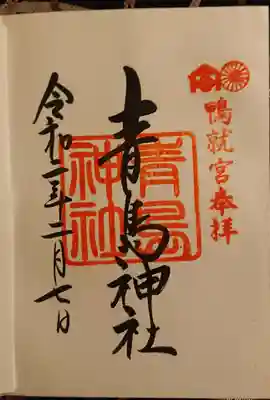 鴨就宮奉拝
青島神社
青島
神社
令和二年二月七日